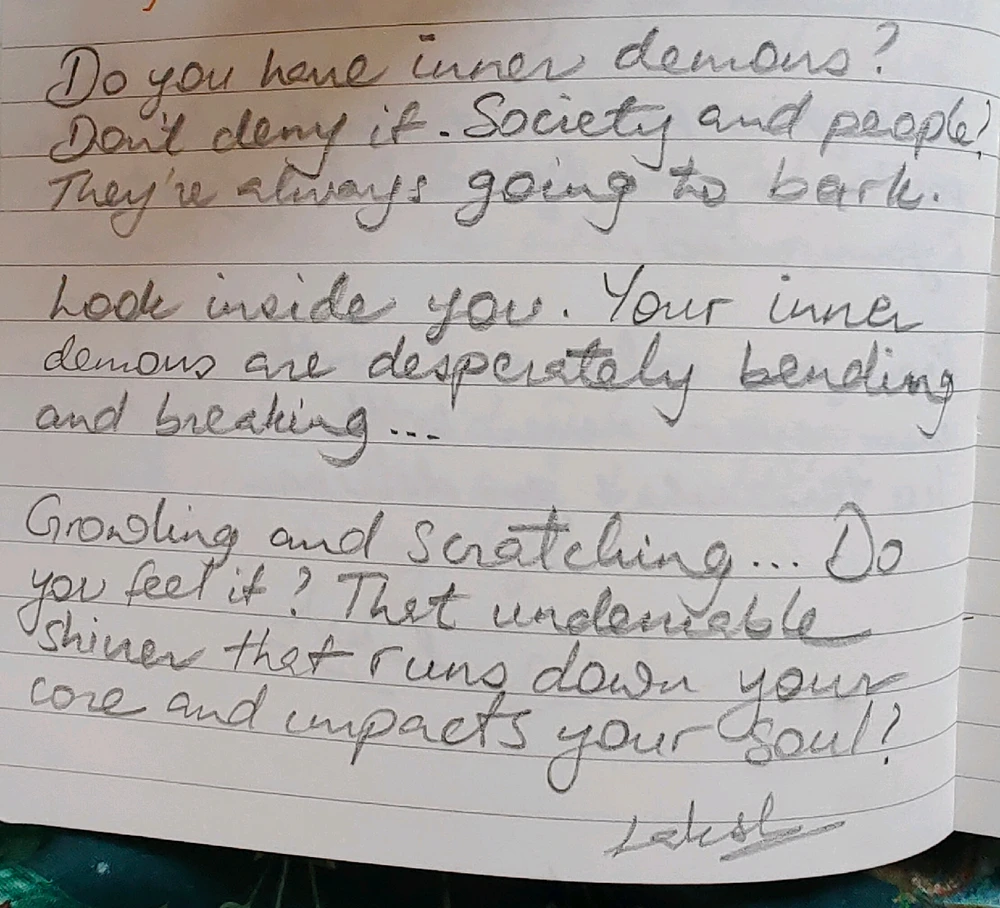 Do you have inner demons?
Don't deny it. Society and people?
They're always going to bark.
Look inside you. Your inner
demons are desperately bending
and breaking...
Growling and scratching... Do
you feel it? That undeniable
shiver that runs down your
core and impacts your soul?